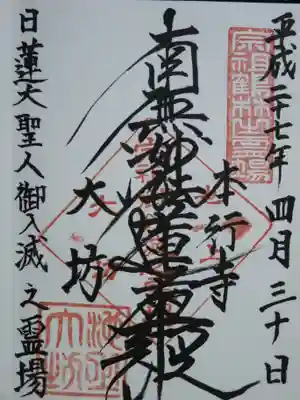 平成二十七年 四月三十日
宗祖鶴林之霊場
本行寺
南無妙法蓮華経
大坊
日蓮大聖人御入滅之霊場
池上
大坊